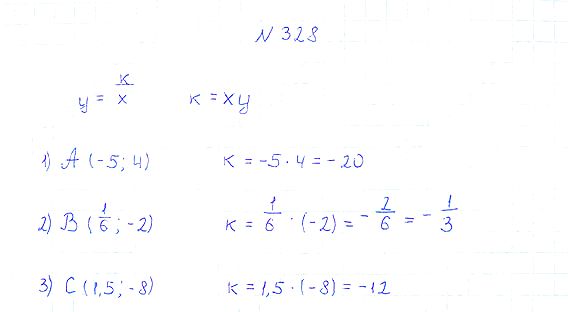 N 328
y = к/x   к = xy
1) A (-5; 4)   к = -5 · 4 = -20
2) B (1/6; -2)   к = 1/6 · (-2) = -2/6 = -1/3
3) C (1,5; -8)   к = 1,5 · (-8) = -12